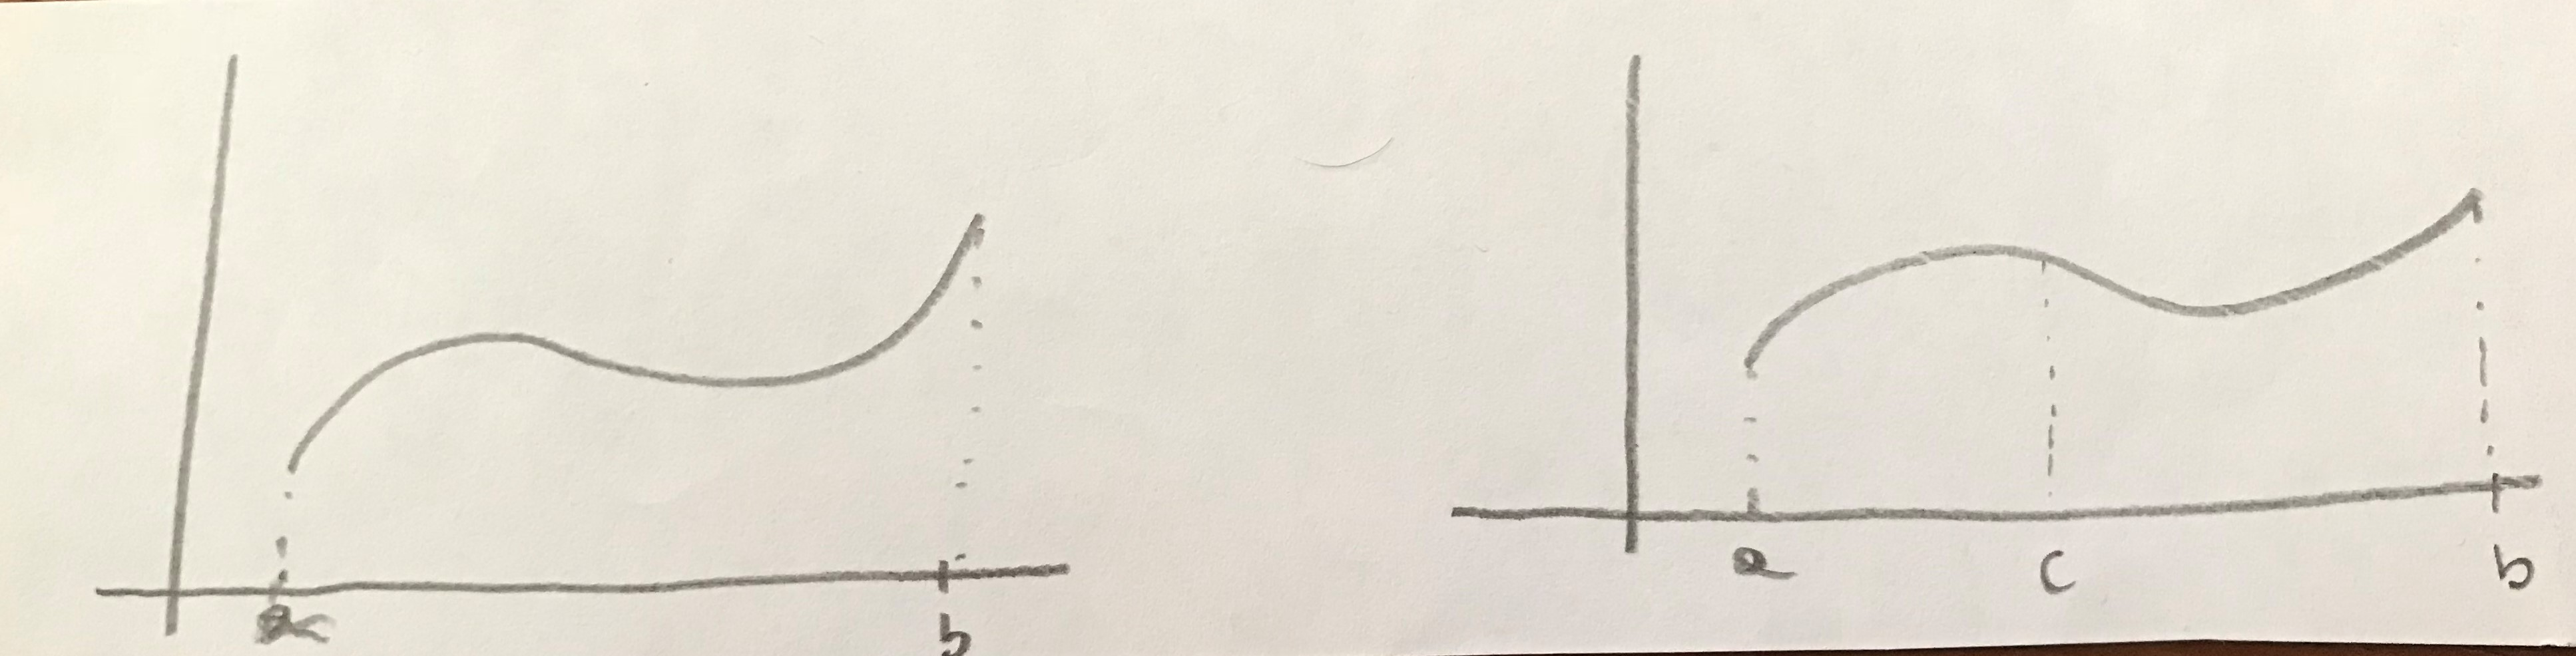 a
b
a
c
b